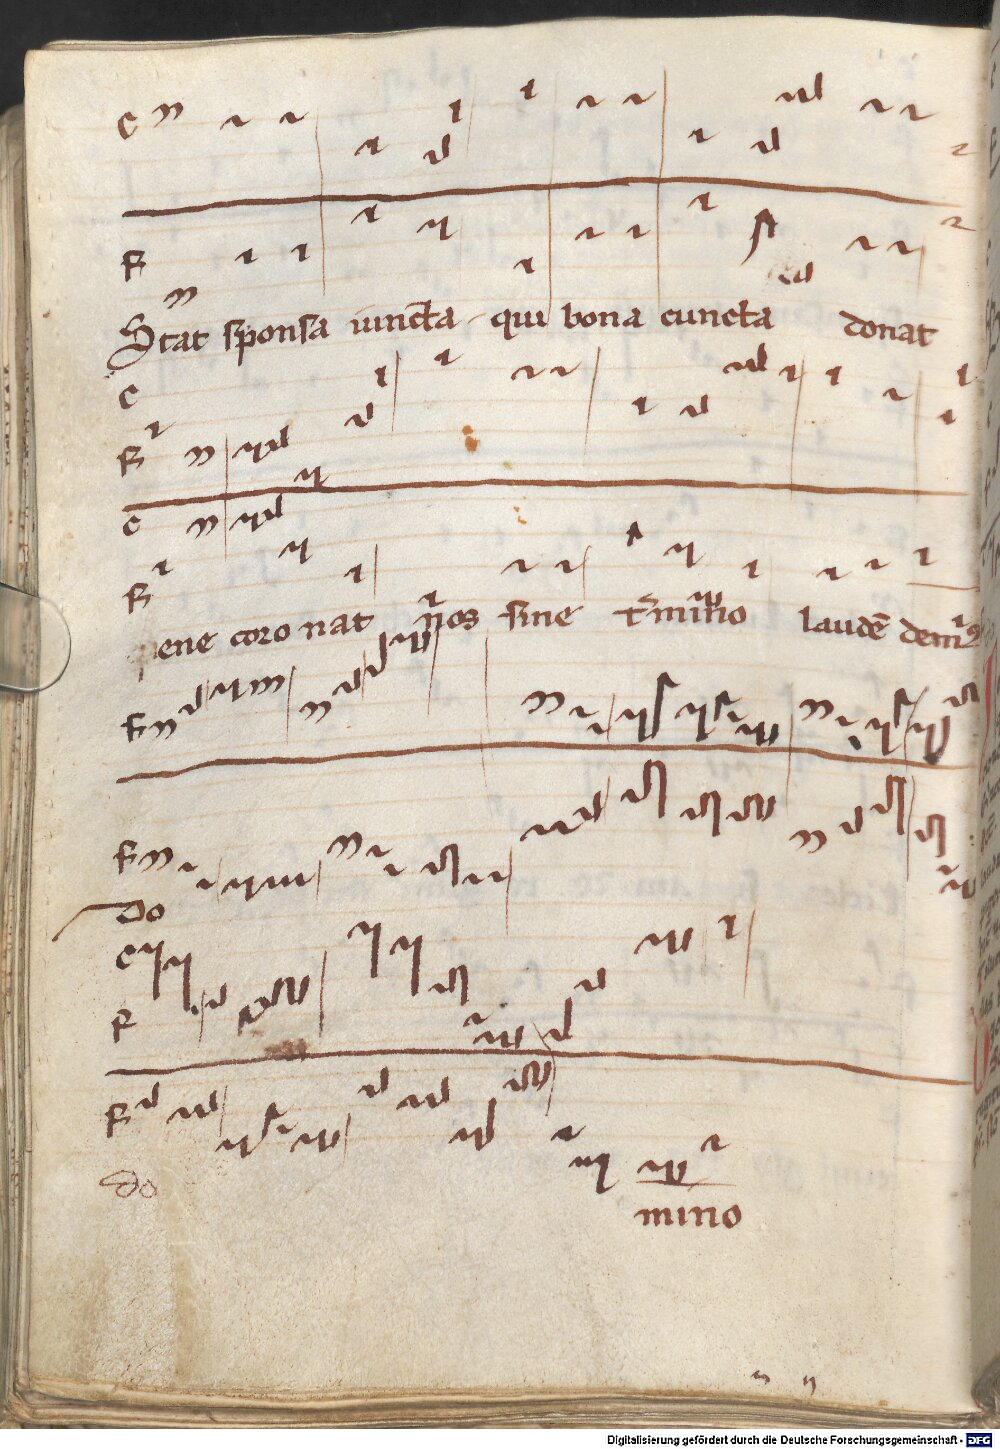 C
F
Stat sponsa iuncta qui bona cuncta donat
C
F
C
F
pene coronat nos sine t'mino laudē dem'9
F
F
Do
C
F
F
do
mino
Digitalisierung gefördert durch die Deutsche Forschungsgemeinschaft - DFG